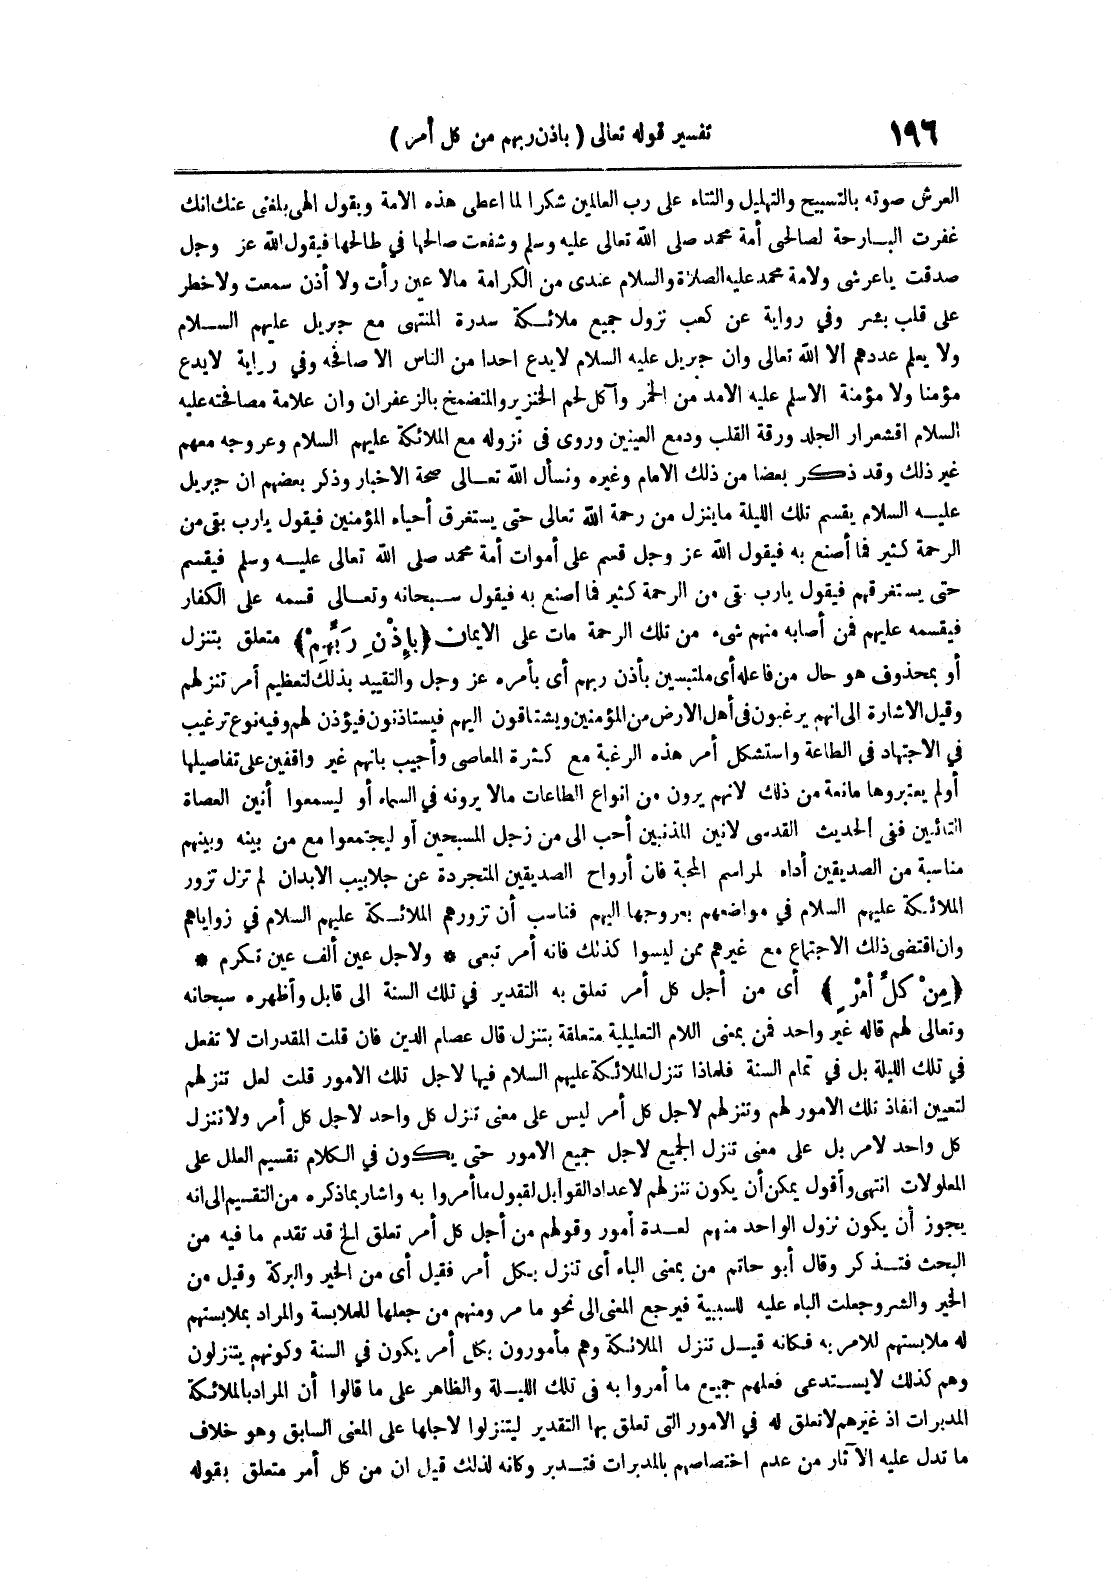 ١٩٦ تفسير قوله تعالى ( باذن ربهم من كل أمر )
العرش صوته بالتسبيح والتهليل والثناء على رب العالمين شكرا لما اعطى هذه الامة ويقول الهى بلغنى عنك انك
غفرت البارحة لصالحى أمة محمد صلى الله تعالى عليه وسلم وشفعت صالحها في طالحها فيقول الله عز وجل
صدقت ياعرشى ولامة محمد عليه الصلاة والسلام عندى من الكرامة مالا عين رأت ولا أذن سمعت ولا خطر
على قلب بشر وفي رواية عن كعب نزول جميع ملائكة سدرة المنتهى مع جبريل عليهم السلام
ولا يعلم عددهم الا الله تعالى وان جبريل عليه السلام لايدع احدا من الناس الا صافحه وفي رواية لايدع
مؤمنا ولا مؤمنة الاسلم عليه الامد من الخمر وآكل لحم الخنزير والمتضمخ بالزعفران وان علامة مصافحته عليه
السلام اقشعرار الجلد ورقة القلب ودمع العينين وروى فى نزوله مع الملائكة عليهم السلام وعروجه معهم
غير ذلك وقد ذكر بعضا من ذلك الامام وغيره ونسأل الله تعالى صحة الاخبار وذكر بعضهم ان جبريل
عليه السلام يقسم تلك الليلة ماينزل من رحمة الله تعالى حتى يستغرق أحياء المؤمنين فيقول يارب بقى من
الرحمة كثير فما أصنع به فيقول الله عز وجل قسم على أموات أمة محمد صلى الله تعالى عليه وسلم فيقسم
حتى يستغرقهم فيقول يارب بقى من الرحمة كثير فما أصنع به فيقول سبحانه وتعالى قسمه على الكفار
فيقسمه عليهم فمن أصابه منهم شىء من تلك الرحمة مات على الايمان ﴿ بِإِذْنِ رَبِّهِمْ ﴾ متعلق بتنزل
أو بمحذوف هو حال من فاعله أى ملتبسين بأذن ربهم أى بأمره عز وجل والتقييد بذلك لتعظيم أمر تنزلهم
وقيل الاشارة الى انهم يرغبون فى أهل الارض من المؤمنين ويشتاقون اليهم فيستاذنون فيؤذن لهم وفيه نوع ترغيب
في الاجتهاد فى الطاعة واستشكل أمر هذه الرغبة مع كثرة المعاصى وأجيب بانهم غير واقفين على تفاصيلها
أولم يعتبروها مانعة من ذلك لانهم يرون من انواع الطاعات مالا يرونه في السماء أو ليسمعوا أنين العصاة
التائبين ففى الحديث القدسى لانين المذنبين أحب الى من زجل المسبحين أو ليجتمعوا مع من بينه وبينهم
مناسبة من الصديقين أداء لمراسم المحبة فان أرواح الصديقين المتجردة عن جلابيب الابدان لم تزل تزور
الملائكة عليهم السلام في مواضعهم بعروجها اليهم فناسب أن تزورهم الملائكة عليهم السلام في زواياهم
وان اقتضى ذلك الاجتماع مع غيرهم ممن ليسوا كذلك فانه أمر تبعى * ولاجل عين ألف عين تكرم *
﴿ مِنْ كُلِّ أَمْرٍ ﴾ أى من أجل كل أمر تعلق به التقدير في تلك السنة الى قابل وأظهره سبحانه
وتعالى لهم قاله غير واحد فمن بمعنى اللام التعليلية متعلقة بتنزل قال عصام الدين فان قلت المقدرات لا تفعل
في تلك الليلة بل في تمام السنة فلماذا تنزل الملائكة عليهم السلام فيها لاجل تلك الامور قلت لعل تنزلهم
لتعيين انفاذ تلك الامور لهم وتنزلهم لاجل كل أمر ليس على معنى تنزل كل واحد لاجل كل أمر ولا تنزل
كل واحد لامر بل على معنى تنزل الجميع لاجل جميع الامور حتى يكون في الكلام تقسيم العلل على
المعلولات انتهى وأقول يمكن أن يكون تنزلهم لاعداد القوابل لقبول ما أمروا به واشار بماذكره من التقسيم الى انه
يجوز أن يكون نزول الواحد منهم لعدة أمور وقولهم من أجل كل أمر تعلق الخ قد تقدم ما فيه من
البحث فتذكر وقال أبو حاتم من بمعنى الباء أى تنزل بكل أمر فقيل أى من الخير والبركة وقيل من
الخير والشر وجعلت الباء عليه للسببية فيرجع المعنى الى نحو ما مر ومنهم من جعلها للملابسة والمراد بملابستهم
له ملابستهم للامر به فكانه قيل تنزل الملائكة وهم مأمورون بكل أمر يكون في السنة وكونهم يتنزلون
وهم كذلك لايستدعى فعلهم جميع ما أمروا به فى تلك الليلة والظاهر على ما قالوا أن المراد بالملائكة
المدبرات اذ غيرهم لاتعلق له في الامور التى تعلق بها التقدير ليتنزلوا لاجلها على المعنى السابق وهو خلاف
ما تدل عليه الآثار من عدم اختصاصهم بالمدبرات فتدبر وكانه لذلك قيل ان من كل أمر متعلق بقوله